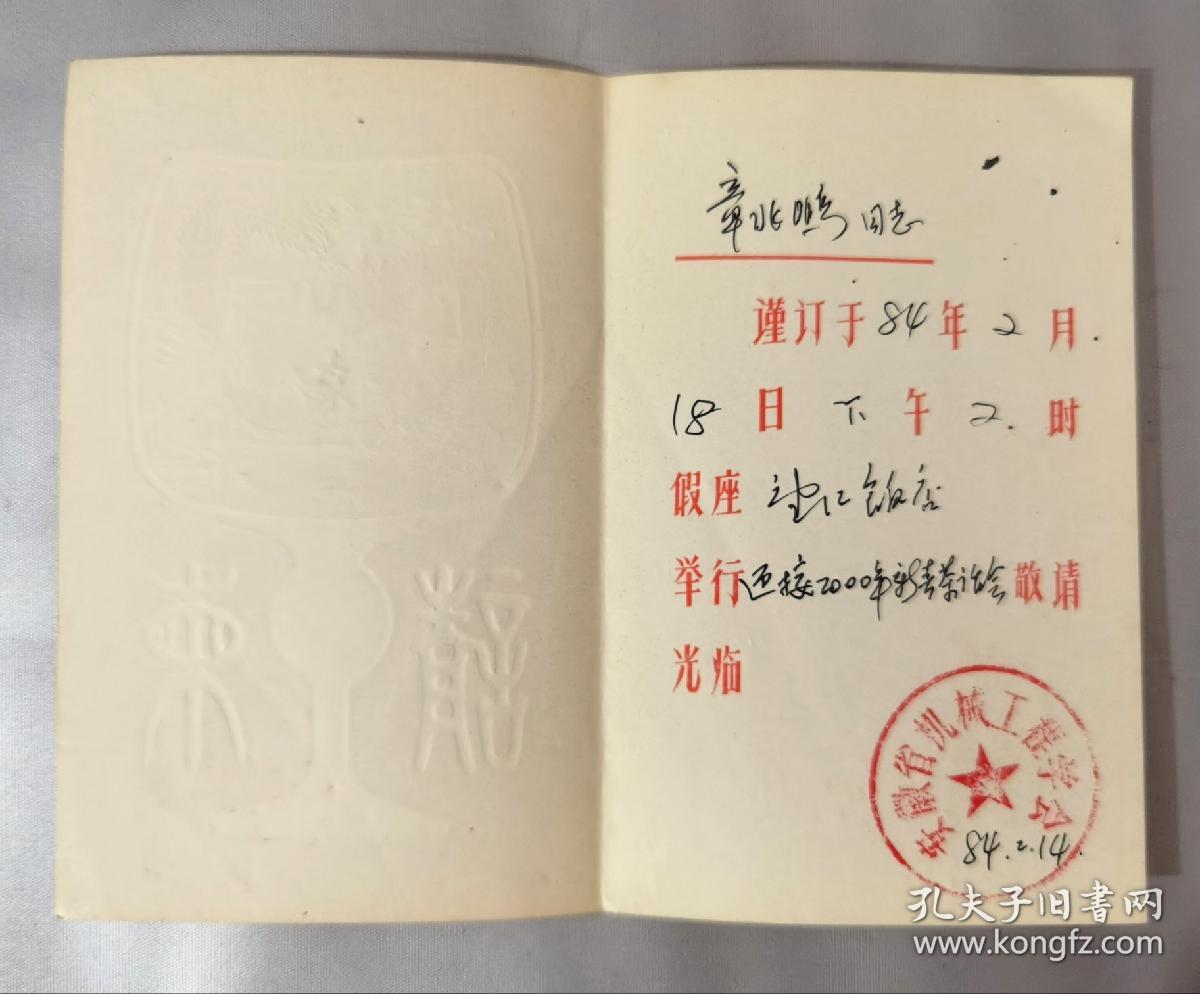 请柬
章兆 同志
谨订于84年2月
18日下午2.时
假座望江饭店
举行迎接2000年新春茶话会敬请
光临
安徽省机械工程学会
84.2.14.
孔夫子旧书网
www.kongfz.com